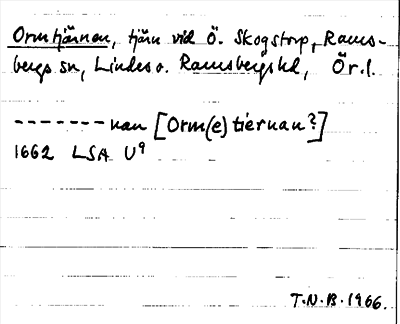 Ormtjärnen, tjärn vid Ö. Skogstorp, Rams-
bergs sn, Lindes o. Ramsbergs hd, Ör.l.
-------nan [Orm(e)tiernan?]
1662 LSA U⁹
T.N.B. 1966.